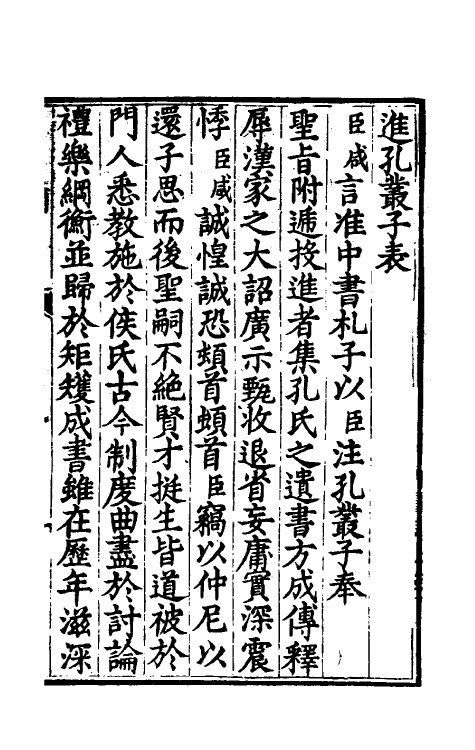 進孔叢子表
臣咸言准中書札子以臣注孔叢子奉
聖旨附遞投進者集孔氏之遺書方成傳釋
辱漢家之大詔廣示甄收退省妄庸實深震
悸臣咸誠惶誠恐頓首頓首臣竊以仲尼以
還子思而後聖嗣不絕賢才挺生皆道被於
門人悉教施於侯氏古今制度曲盡於討論
禮樂綱衡並歸於矩矱成書雖在歷年滋深